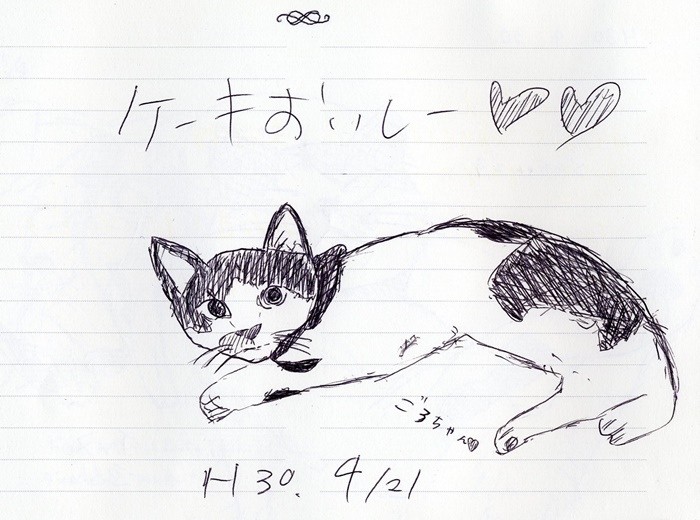 ケーキおいしー♥♥
ごろちゃん♥
H30. 4/21